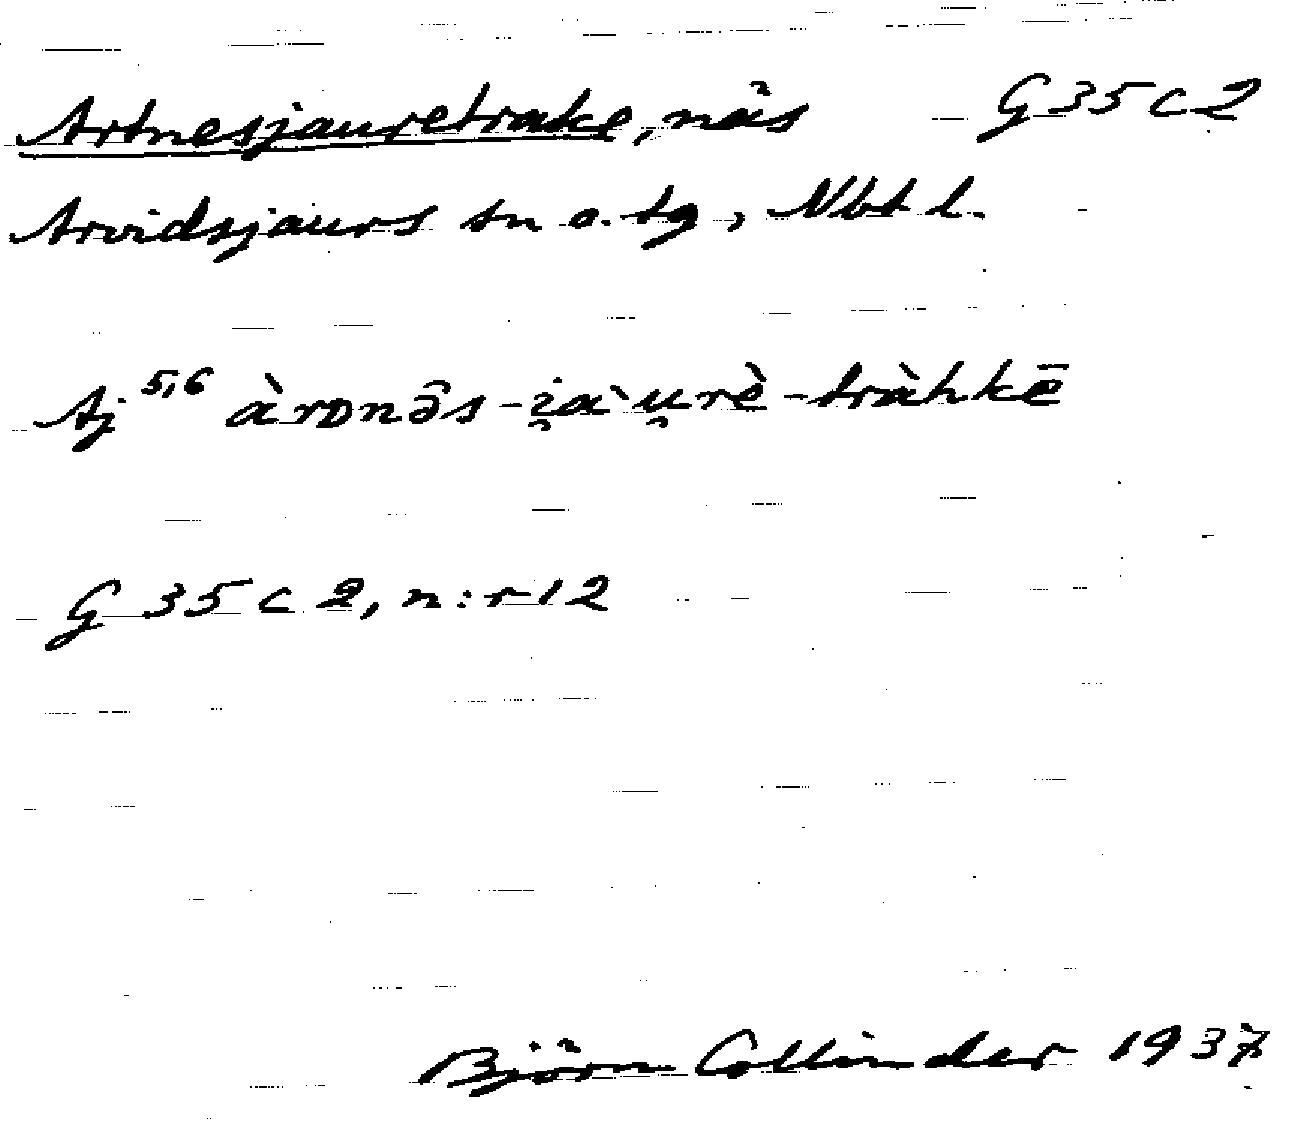 Artnesjauretrake, näs G 35 c 2
Arvidsjaurs sn o. tg, Nbt l.
Aj 5,6 àrᴅnə̑s-i̯a`u̯rè-tràhkē
G 35 c 2, n:r 12
Björn Collinder 1937